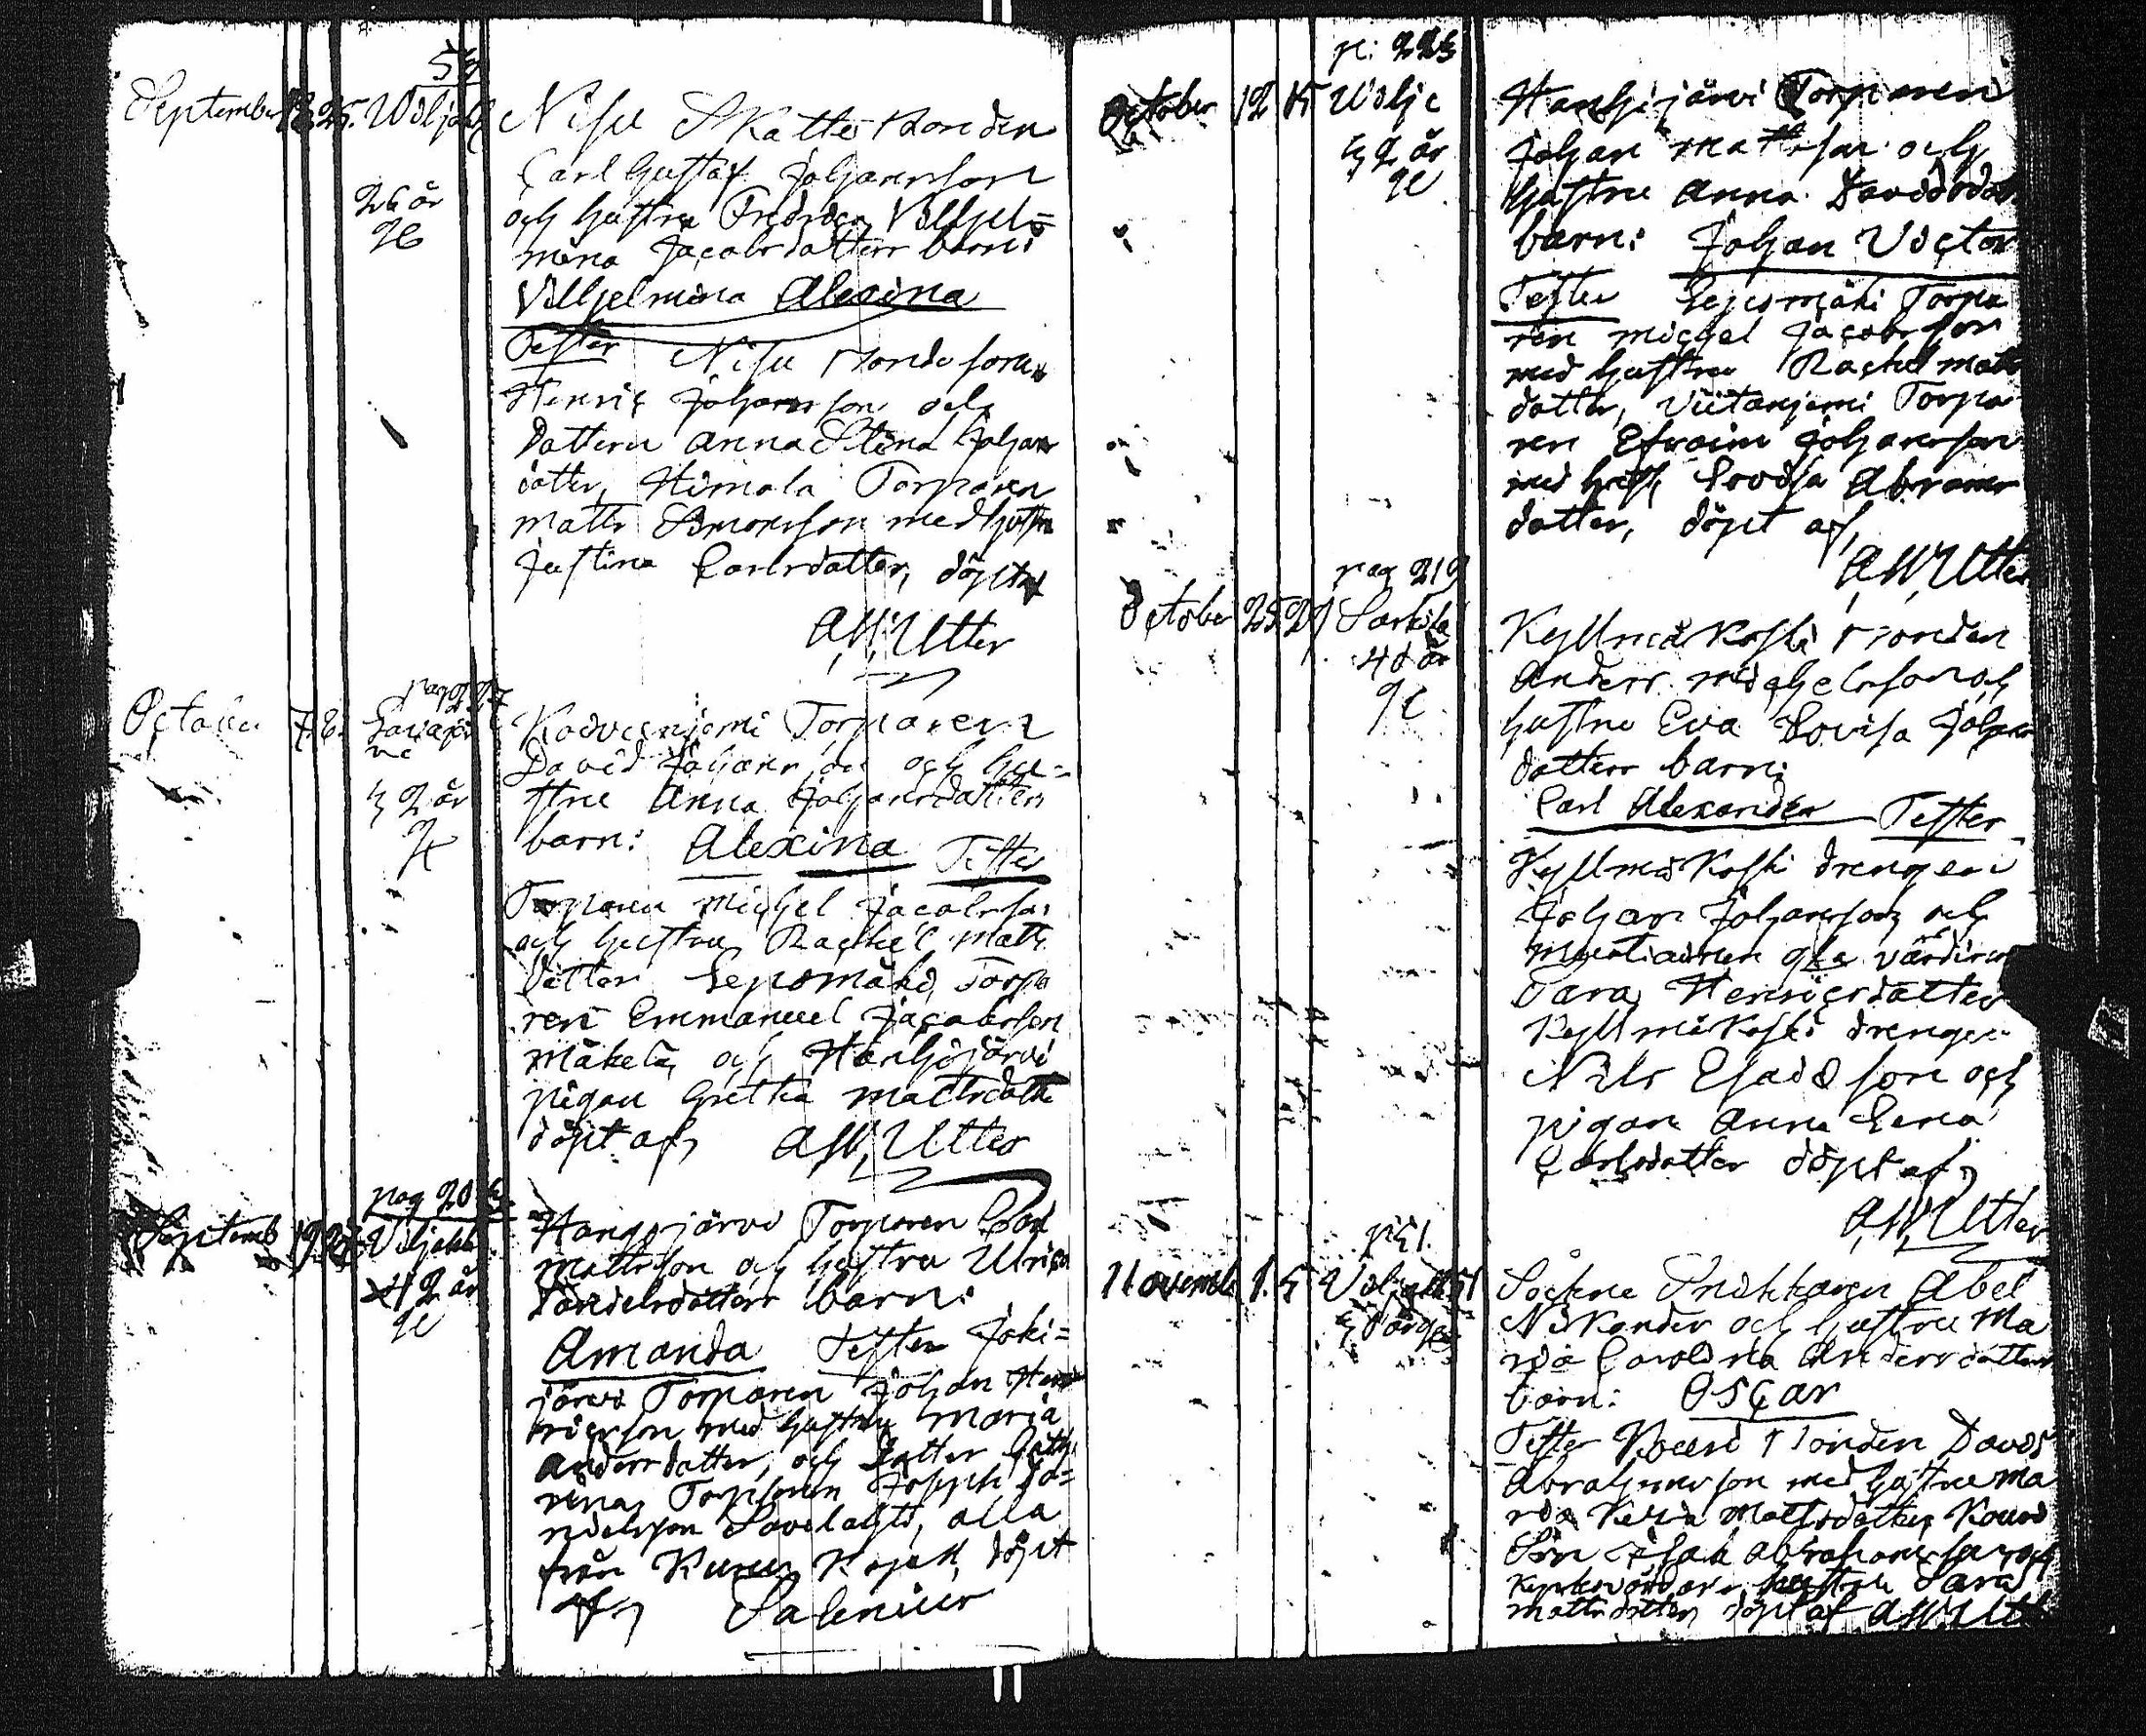 September 25. Wiljakk
26 år
Nisu Skatte Bonden
Carl Gustaf Johansson
och hustru Fredrica Vilhel=
mina Jacobsdatters barn:
Vilhelmina Alexina
Testes Nisu Bonde sonen
Henric Johansson och
Dattern Anna Stina Johans
datter, Himola Torparen
Matts Simonsson med hustru
Justina Carlsdatter, döpt af
A. W. Utter
pag 227
October 7 8. Saviajär
vi
32 år
Koivuniemi Torparen
David Johansson och hu=
stru Anna Johansdatters
barn: Alexina Testes
Torparen Michel Jacobsson
och hustru Rachel Matts
datter Lepomäki, Torpa
ren Emmanuel Jacobsson
Mäkelä, och Hanhijärvi
pigan Gretha Mattsdatter
döpt af, A. W. Utter
pag 20
Septemb 19 27 Viljakk
42 år
Hangojärvi Torparen Carl
Mattsson och hustru Ulrica
Danielsdatters barn:
Amanda Testes Joki=
järvi Torparen Johan Hen
ricsson med hustru Maria
Andersdatter, och Datter Cath
rina, Torparen Joseph Da=
nielsson Savilahti, alla
från Kuru Kapell, döpt
af, Salenius
p: 223
October 12 15 Wilje
32 år
Hanhijärvi Torparen
Johan Mattsson och
hustru Anna Davidsdatt
barn: Johan Victor
Testes Lepomäki Torpa
ren Michel Jacobsson
med hustru Rachel Matts
datter, Viitaniemi Torpa
ren Efraim Johansson
med hustr Lovisa Abrams
datter, döpt af,
A. W. Utter
pag 219
October 25 27 Sarkila
40 år
Kyllmäkoski Bonden
Anders Michelsson och
hustru Eva Lovisa Johans
datters barn:
Carl Alexander Testes
Kyllmäkoski drengen
Johan Johansson och
gla värdinn
Sara Henricsdatter
Kyllmäkoski drengen
Nils Esaisson och
pigan Anna Lena
Carlsdatter döpt af,
A. W. Utter
p 51.
Novemb 1. 5 Viljakk
Sockne Snikkaren Abel
Nikander och hustru Ma
ria Carolina Andersdatters
barn: Oscar
Testes Bonden David
Abrahamsson med hustru Ma
ria Mattsdatter,
Son Isak Abrahamsson och
hustru Sara
Mattsdatter, döpt af A. W. Utt